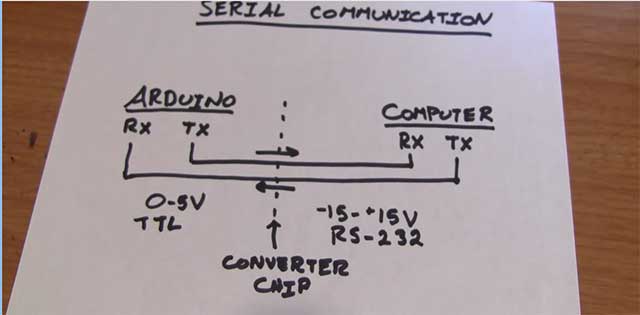 SERIAL COMMUNICATION
ARDUINO
RX TX
COMPUTER
RX TX
0-5V
TTL
-15-+15V
RS-232
CONVERTER
CHIP